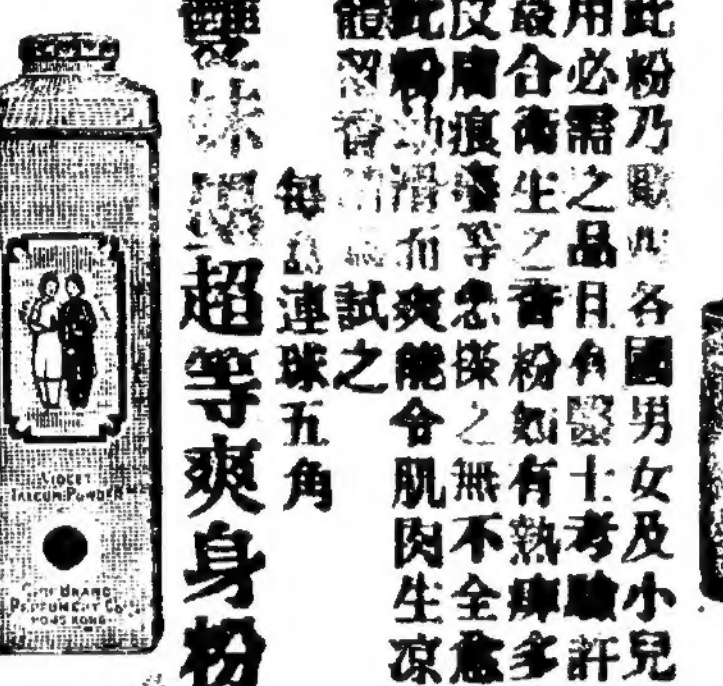 此粉乃歐各國男女及小兒
用必需之品且有醫士考驗許
最合衛生之香粉如有熱痱多
皮膚痕癢等患搽之無不全愈
此粉幼滑而爽能令肌肉生凉
體留香試之
每盒連球五角
雙妹嘜超等爽身粉
VIOLET
TALCUM POWDER
BRAND
PERFUMERY Co
HONG KONG